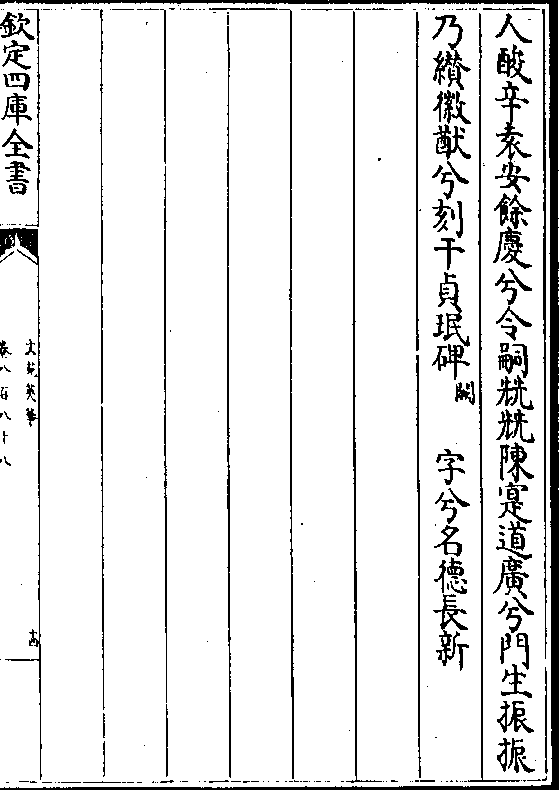 人酸辛袁安餘慶兮令嗣兟兟陳寔道廣兮門生振振
乃纉徽猷兮刻于貞珉碑闕　字兮名德長新
欽定四庫全書
文苑英華
卷八百八十八
十四